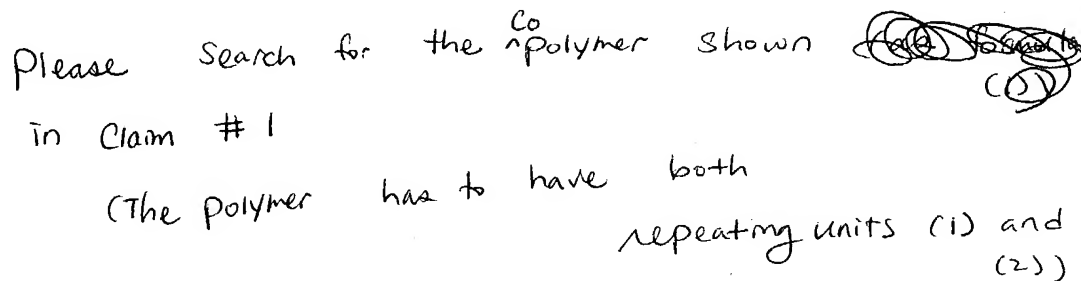 Please search for the Copolymer shown
in Claim # 1
(The polymer has to have both
repeating units (1) and
(2))